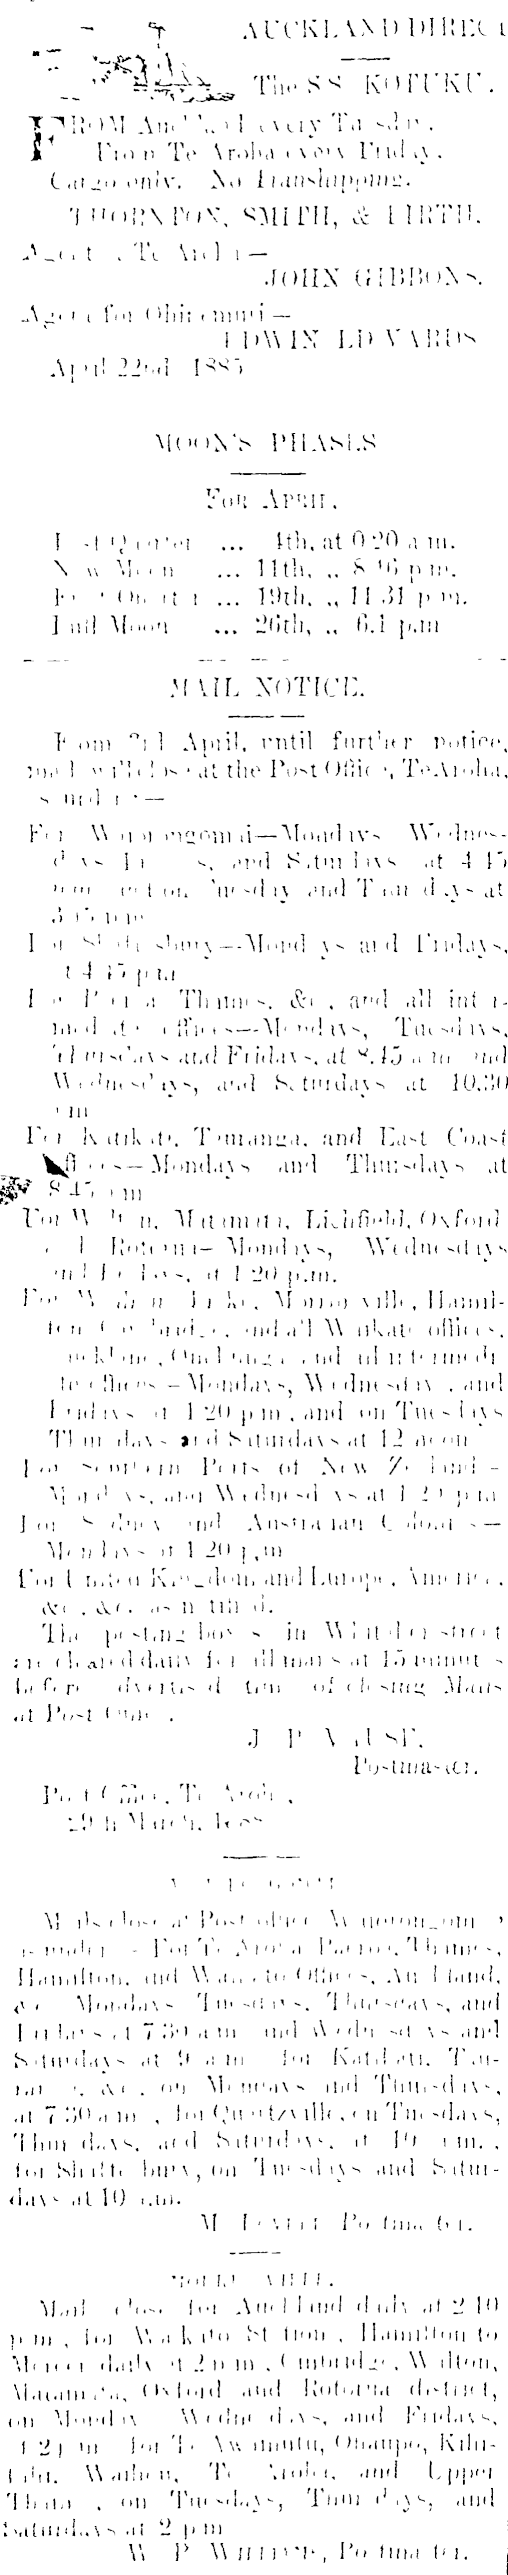 AUCKLAND DIRECT
The S.S. KOTUKU.
FROM Auckland every Tuesday.
From Te Aroha every Friday.
Cargo only. No Transhipping.
THORNTON, SMITH, & FIRTH.
Agent, Te Aroha—
JOHN GIBBONS.
Agent for Ohinemuri—
EDWIN EDWARDS
April 22nd 1885
MOON'S PHASES
FOR APRIL.
Last Quarter ... 4th, at 0.20 a.m.
New Moon ... 11th, ,, p.m.
First Quarter ... 19th, ,, 11.31 p.m.
Full Moon ... 26th, ,, 6.1 p.m
MAIL NOTICE.
From April, until further notice,
mails will close at the Post Office, Te Aroha,
as under:—
For Waiorongomai—Mondays Wednes-
days and Saturdays at 4.45
p.m. and on Tuesday and Thursdays at
3.45 p.m
For Shaftesbury—Mondays and Fridays,
at 4.45 p.m
For Paeroa Thames, &c., and all inter-
mediate offices—Mondays, Tuesdays,
Thursdays and Fridays, at 8.45 a.m and
Wednesdays, and Saturdays at 10.30
a.m
For Katikati, Tauranga, and East Coast
offices—Mondays and Thursdays at
8.45 a.m
For Walton, Matamata, Lichfield, Oxford
and Rotorua—Mondays, Wednesdays
and Fridays, at 1.20 p.m.
For Morrinsville, Hamil-
ton Cambridge, and all Waikato offices,
Auckland, Onehunga and all intermedi-
ate offices—Mondays, Wednesdays, and
Fridays at 1.20 p.m., and on Tuesdays
Thursdays and Saturdays at 12 noon
For Southern Ports of New Zealand—
Mondays, and Wednesdays at 1.20 p.m
For Sydney and Australian Colonies—
Mondays at 1.20 p.m
For United Kingdom and Europe, America,
&c., &c. as notified.
The posting boxes in Whitaker street
are cleared daily for all mails at 15 minutes
before advertised time of closing Mails
at Post Office.
J. P.
Postmaster.
Post Office, Te Aroha,
March,
Mails close at Post office Waiorongomai
as under:—For Te Aroha Paeroa, Thames,
Hamilton, and Waikato Offices, Auckland,
&c Mondays Tuesdays, Thursdays, and
Fridays at 7.30 a.m and Wednesdays and
Saturdays at 9 a.m for Katikati, Tau-
ranga, &c., on Mondays and Thursdays,
at 7.30 a.m., for Quartzville, on Tuesdays,
Thursdays, and Saturdays, at 10 a.m.,
for Shaftesbury, on Tuesdays and Satur-
days at 10 a.m.
Postmaster.
Mails close for Auckland daily at 2.10
p.m., for Waikato Stations, Hamilton to
Mercer daily at 2 p.m., Cambridge, Walton,
Matamata, Oxford and Rotorua district,
on Mondays Wednesdays, and Fridays,
for Te Awamutu, Ohaupo, Kihi-
kihi, Waihou, Te Aroha, and Upper
Thames, on Tuesdays, Thursdays, and
Saturdays at 2 p.m
W. P. Postmaster.